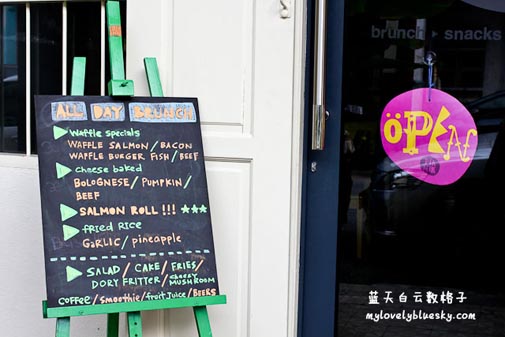 ALL DAY BRUNCH
Waffle specials
WAFFLE SALMON/BACON
WAFFLE BURGER FISH/BEEF
cheese baked
BOLOGNESE/PUMPKIN/
BEEF
SALMON ROLL !!!
fried Rice
GaRLIC/pineapple
SALAD/CAKE/FRIES/
DORY FRITTER/CHEESY
MUSHROOM
COFFEE/smoothie/fruit Juice/BEERS
brunch ▸ snacks
öPEaf
蓝天白云数格子
mylovelybluesky.com